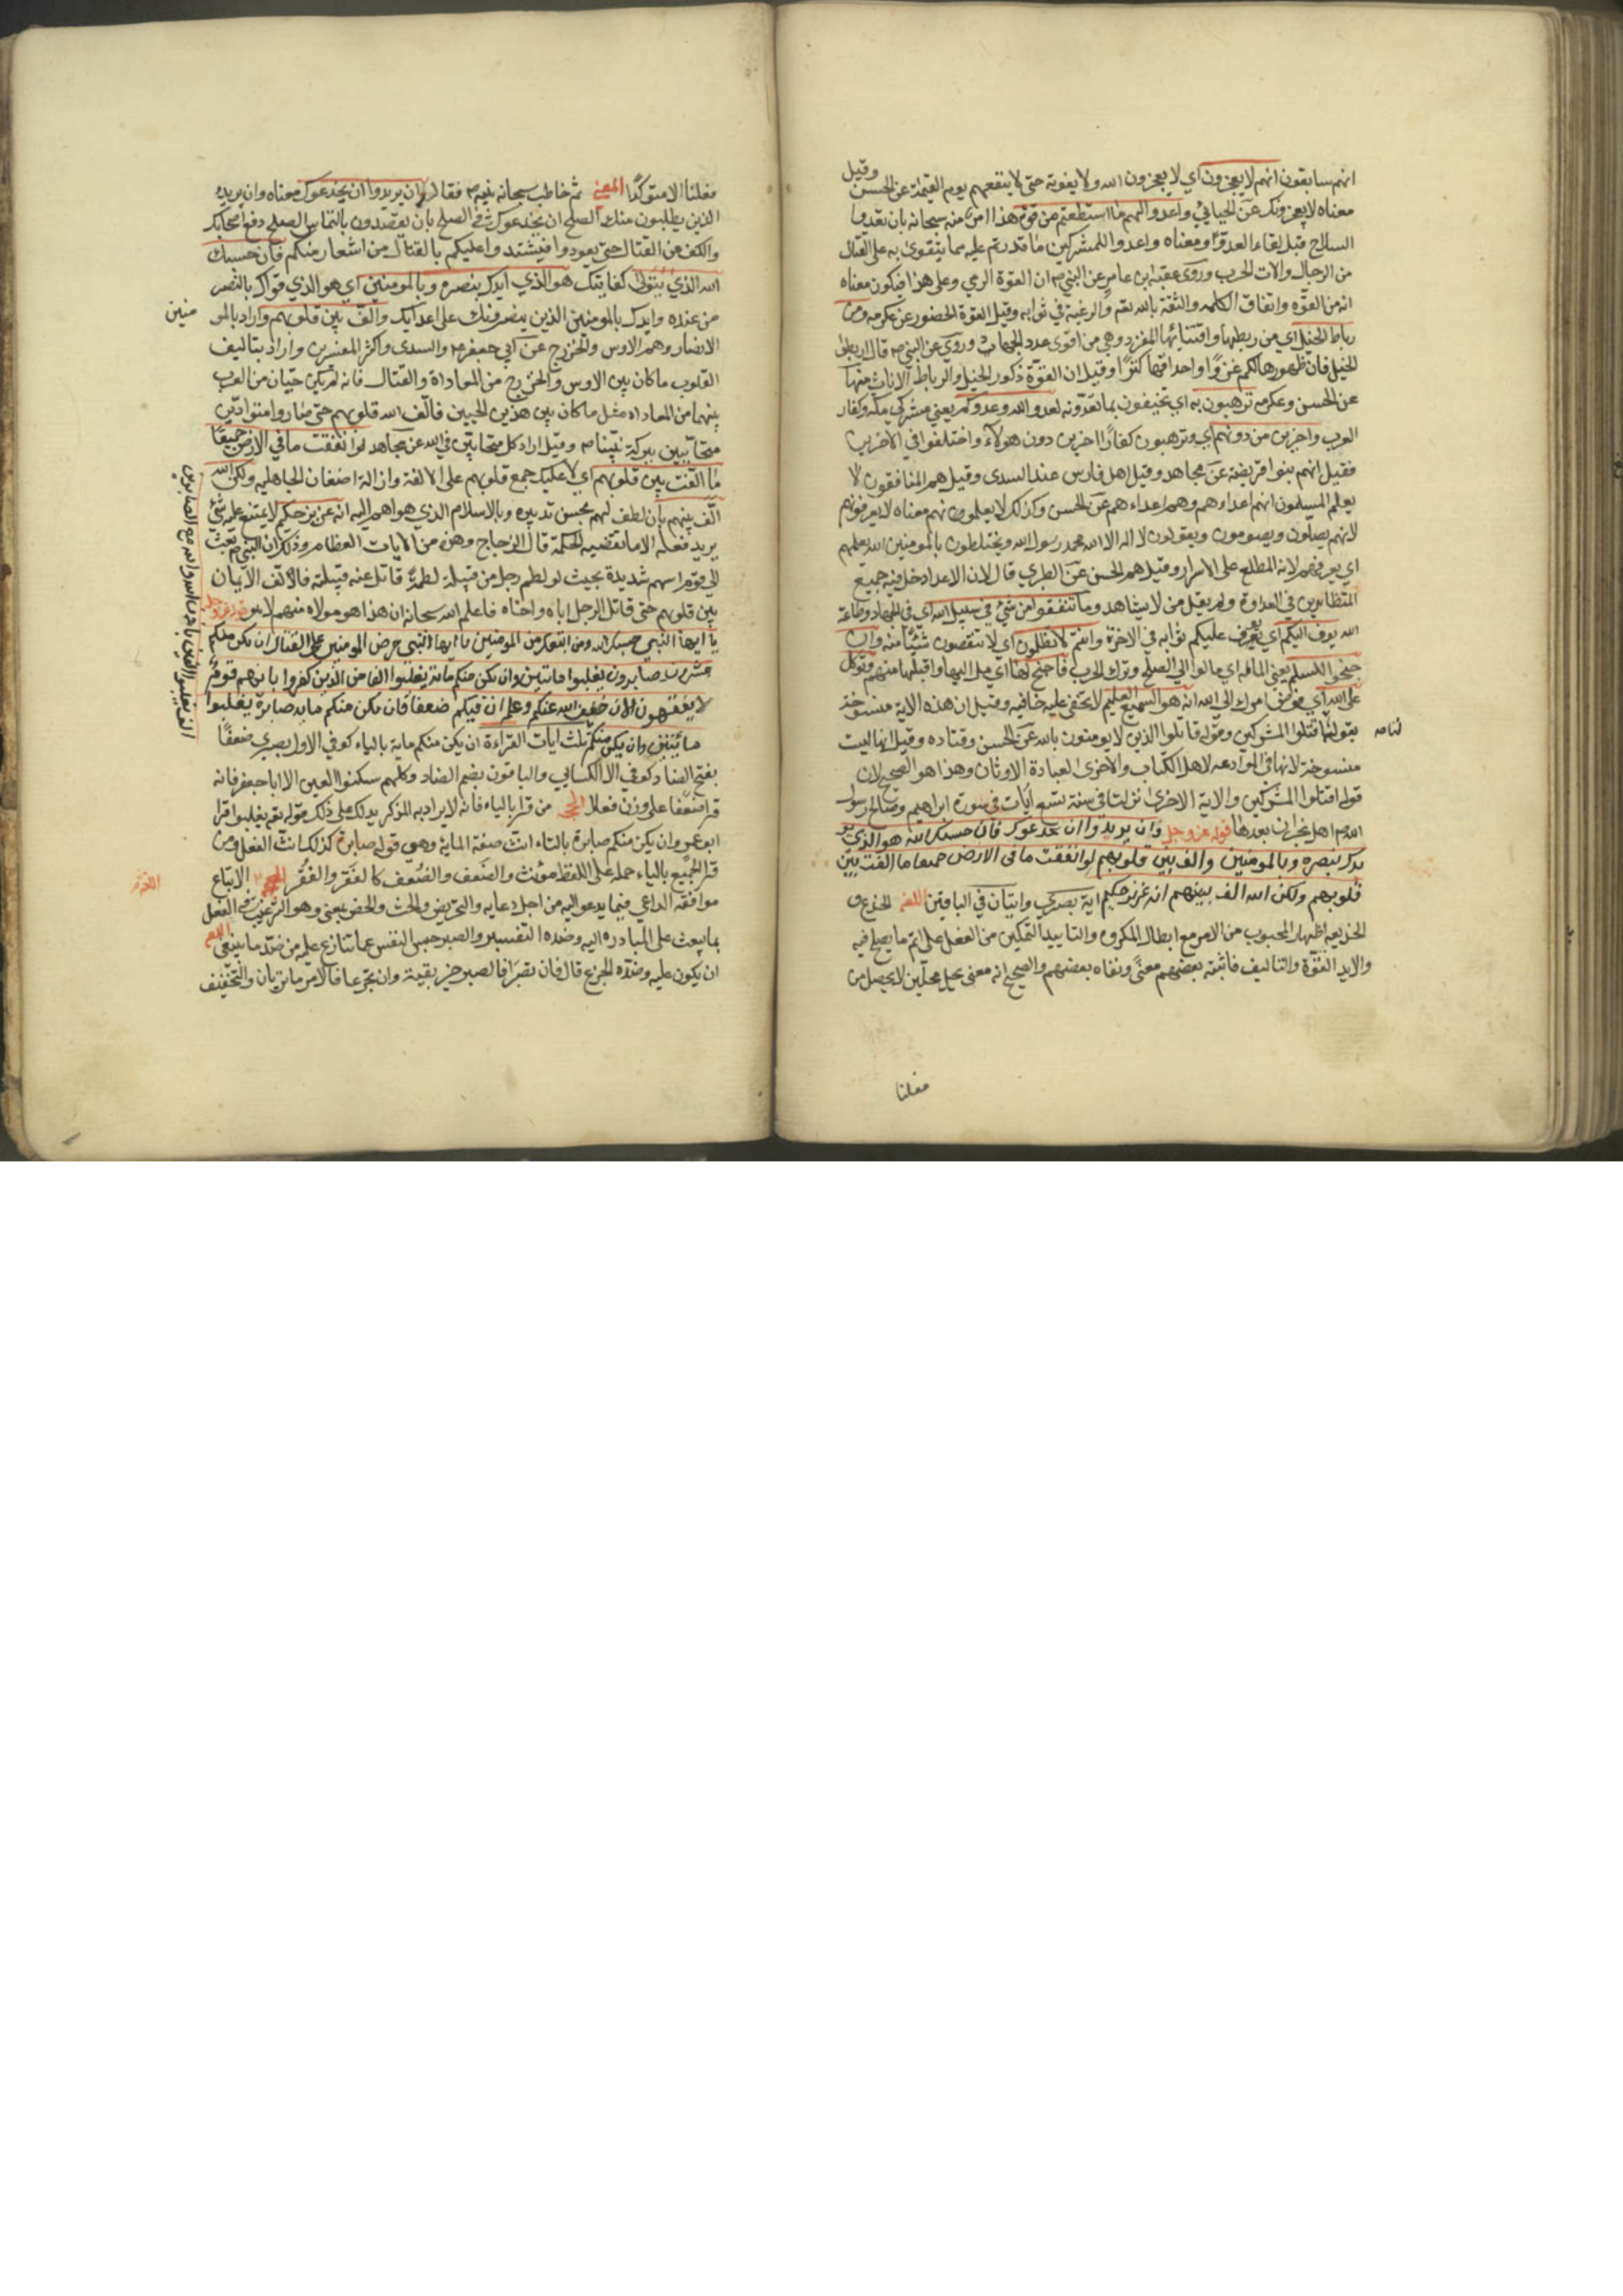 وقيل
انهم سابقون انهم لا يعجزون اي لا يعجزون الله ولا يفوته حتى لا ينتقمهم يوم القيمة عن الحسن
معناه لا يعجزونك عن الجبائي واعدوا لهم ما استطعتم من قوة هذا امر منه سبحانه بان يعدوا
السلاح قبل لقاء العدو ومعناه واعدوا للمشركين ما قدرتم عليه مما يتقوى به على القتال
من الرجال والات الحرب وروى عقبة بن عامر عن النبي ص ان القوة الرمي وعلى هذا فيكون معناه
انه من القوة واتفاق الكلمه والثقة بالله تعم والرغبة في ثوابه وقيل القوة الحصور عن عكرمه ومن
رباط الخيل اي من ربطها واقتنائها للغزو وهي من اقوى عدد الجهاد وروي عن النبي ص قال اربطوا
الخيل فان ظهورها لكم عزا واجوافها كنزا وقيل ان القوة ذكور الخيل والرباط الاناث منها
عن الحسن وعكرمه ترهبون به اي تخيفون بما تعدونه لعدو الله وعدوكم يعني مشركي مكه وكفار
العرب واخرين من دونهم اي وترهبون كفارا اخرين دون هولاء واختلفوا في الاخرين
فقيل انهم بنوا قريضة عن مجاهد وقيل اهل فارس عند السدى وقيل هم المنافقون لا
يعلم المسلمون انهم اعداءهم وهم اعداءهم عن الحسن وكذلك لا يعلمونهم معناه لا يعرفونهم
لانهم يصلون ويصومون ويقولون لا اله الا الله محمد رسول الله ويختلطون بالمومنين الله يعلمهم
اي يعرفهم لانه المطلع على الاسرار وقيل هم الجن عن الطبري قال لان الاعداء دخل فيه جميع
المتظاهرين في العداوة ولم يقبل من لا يشاهد وما تنفقوا من شئ في سبيل الله اي في الجهاد وطاعة
الله يوف اليكم اي يوفر عليكم ثوابه في الاخرة وانتم لا تظلمون اي لا تنتقصون شيئا منه وان
جنحوا للسلم يعني المالوا اي مالوا الى الصلح وترك الحرب فاجنح لها اي مل اليها واقبلها منهم وتوكل
على الله اي فوض امرك الى الله انه هو السميع العليم لا تخفى عليه خافيه وقيل ان هذه الاية منسوخة
بقوله اقتلوا المشركين وقوله قاتلوا الذين لا يومنون بالله عن الحسن وقتاده وقيل انها ليست
منسوخة لانها في الموادعه لاهل الكتاب والاخرى لعبادة الاوثان وهذا هو الصحيح لان
قوله اقتلوا المشركين والاية الاخرى نزلت في سنة تسع ايات في سورة ابراهيم وصالح رسول
الله ص اهل نجران بعدها قوله عز وجل وان يريدوا ان يخدعوك فان حسبك الله هو الذي
ايدك بنصره وبالمومنين والف بين قلوبهم لو انفقت ما في الارض جميعا ما الفت بين
قلوبهم ولكن الله الف بينهم انه عزيز حكيم اية بصري وايتان في الباقين اللغة الخدع و
الخديعه اظهار المحبوب من الامر مع ابطال المكروه والتاييد التمكين من الفعل على اتم ما يصح فيه
والايد القوة والتاليف فاثبته بعضهم معنى ونفاه بعضهم والصحيح انه معنى يحل محلين لا يحصل من
فعلنا
فعلنا الا متوكدا المعنى ثم خاطب سبحانه نبيه ص فقال وان يريدوا ان يخدعوك معناه وان يريد
الذين يطلبون منك الصلح ان يخدعوك في الصلح بان يقصدون بالتماس الصلح دفع اصحابك
والكف عن القتال حتى يعودوا فيشتد واعليكم بالقتال من اشعار منكم فان حسبك
الله الذي يتولى كفايتك هو الذي ايدك بنصره وبالمومنين اي هو الذي قواك بالنصر
من عنده وايدك بالمومنين الذين ينصرونك على اعدائك والف بين قلوبهم واراد بالمو
منين
الانصار وهم الاوس والخزرج عن ابي جعفر ع والسدى واكثر المفسرين واراد بتاليف
القلوب ما كان بين الاوس والخزرج من المعاداة والقتال فانه لم يكن حيان من العرب
بينهما من المعاداه مثل ما كان بين هذين الحيين فالف الله قلوبهم حتى صاروا متوادين
متحابين ببركة نبينا ص وقيل اراد كل متحابين في الله عن مجاهد لو انفقت ما في الارض جميعا
ما الفت بين قلوبهم اي لا يمكنك جمع قلوبهم على الالفة وازالة اضغان الجاهليه ولكن الله
الف بينهم بان لطف لهم بحسن تدبيره وبالاسلام الذي هداهم اليه انه عزيز حكيم لا يمتنع عليه شئ
يريد فعله الا ما تقتضيه الحكمة قال الزجاج وهن من الايات العظام وذلك ان النبي ص بعث
الى قوم انفسهم شديدة بحيث لو لطم رجل من قبيلة لطمة قاتل عنه قبيلته فالف الايمان
بين قلوبهم حتى قاتل الرجل اباه واخاه فاعلم الله سبحانه ان هذا هو مولاه منهم لا هو قوله عز وجل
يا ايها النبي حسبك الله ومن اتبعك من المومنين يا ايها النبي حرض المومنين على القتال ان يكن منكم
عشرون صابرون يغلبوا مائتين وان تكن منكم مائة يغلبوا الفا من الذين كفروا بانهم قوم
لا يفقهون الان خفف الله عنكم وعلم ان فيكم ضعفا فان يكن منكم مايه صابرة يغلبوا
مائتين وان يكن منكم ثلث ايات القراءة ان يكن منكم ماية بالياء كوفي الاول بصري ضعفا
الف يغلبوا الفين باذن الله والله مع الصابرين
بفتح الضاد كوفي الا الكسايي والباقون بضم الضاد وكلهم سكنوا العين الا ابا جعفر فانه
قرا ضعفا على وزن فعلا الحجة من قرا بالياء فانه لا يراد به المذكر يدلك على ذلك قوله تعم يغلبوا قرا
ابو عمرو ان يكن منكم صابرة بالتاء انث صفة الماية وهي قوله صابرة كذلك انث الفعل ومن
قرا الجميع بالياء حمله على اللفظ مونث والضعف والضعف كالفقر والفقر الاتباع
اللغة
موافقة الداعي فيما يدعو اليه من اجل دعايه والتحريض والحث والحض بمعنى وهو الترغيب في الفعل
بما يبعث على المبادره اليه وضده التفسير والصبر حبس النفس عما تنازع عليه من ضد ما ينبغي
ان يكون عليه وضده الجزع قال فان تصبرا فالصبر خير بقية وان تجزعا فالامر ما تريان والتخفيف